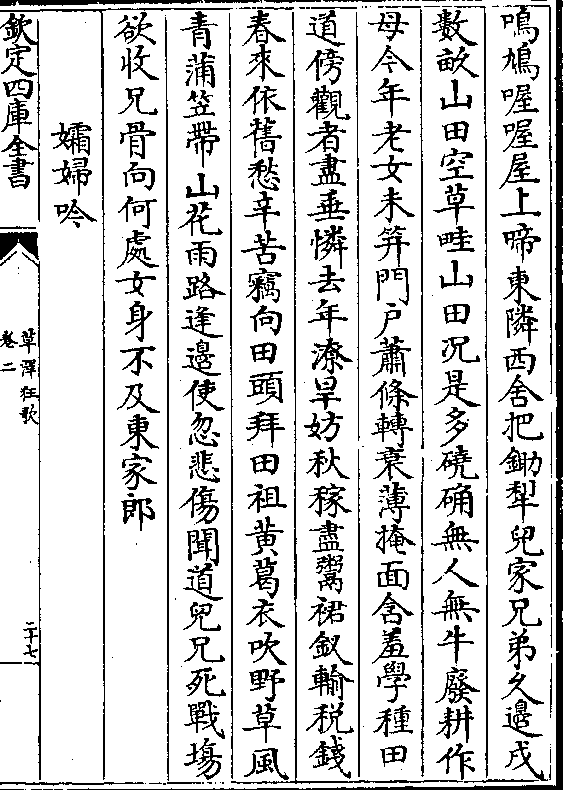 鳴鳩喔喔屋上啼東隣西舍把鋤犁兒家兄弟久邊戍
數畝山田空草畦山田况是多磽确無人無牛廢耕作
母今年老女未筓門户蕭條轉衰薄掩面含羞學種田
道傍觀者盡垂憐去年潦旱妨秋稼盡鬻裙釵輸税錢
春來依舊愁辛苦竊向田頭拜田祖黄葛衣吹野草風
青蒲笠帶山花雨路逢邊使忽悲傷聞道兒兄死戰塲
欲收兄骨向何處女身不及東家郎
孀婦吟
欽定四庫全書
草澤狂歌
卷二
二十七